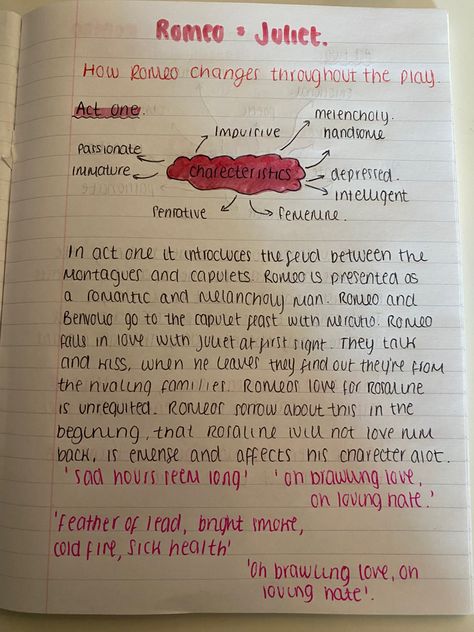 Romeo & Juliet.
How Romeo changes throughout the play.
Act one.
Impulsive
melencholy
handsome
passionate
immature
charecteristics
depressed
intelligent
Penrative
femenine.
In act one it introduces the feud between the
Montagues and capulets. Romeo is presented as
a romantic and melancholy man. Romeo and
Benvolio go to the capulet feast with mercutio. Romeo
falls in love with Juliet at first sight. They talk
and kiss, when he leaves they find out they're from
the rivaling families. Romeos love for Rosaline
is unrequited. Romeos sorrow about this in the
begining, that Rosaline will not love him
back, is emense and affects his charecter alot.
'sad hours seem long'
'oh brawling love,
oh loving hate.'
'feather of lead, bright smoke,
cold fire, sick health'
'oh brawling love, oh
loving hate'.